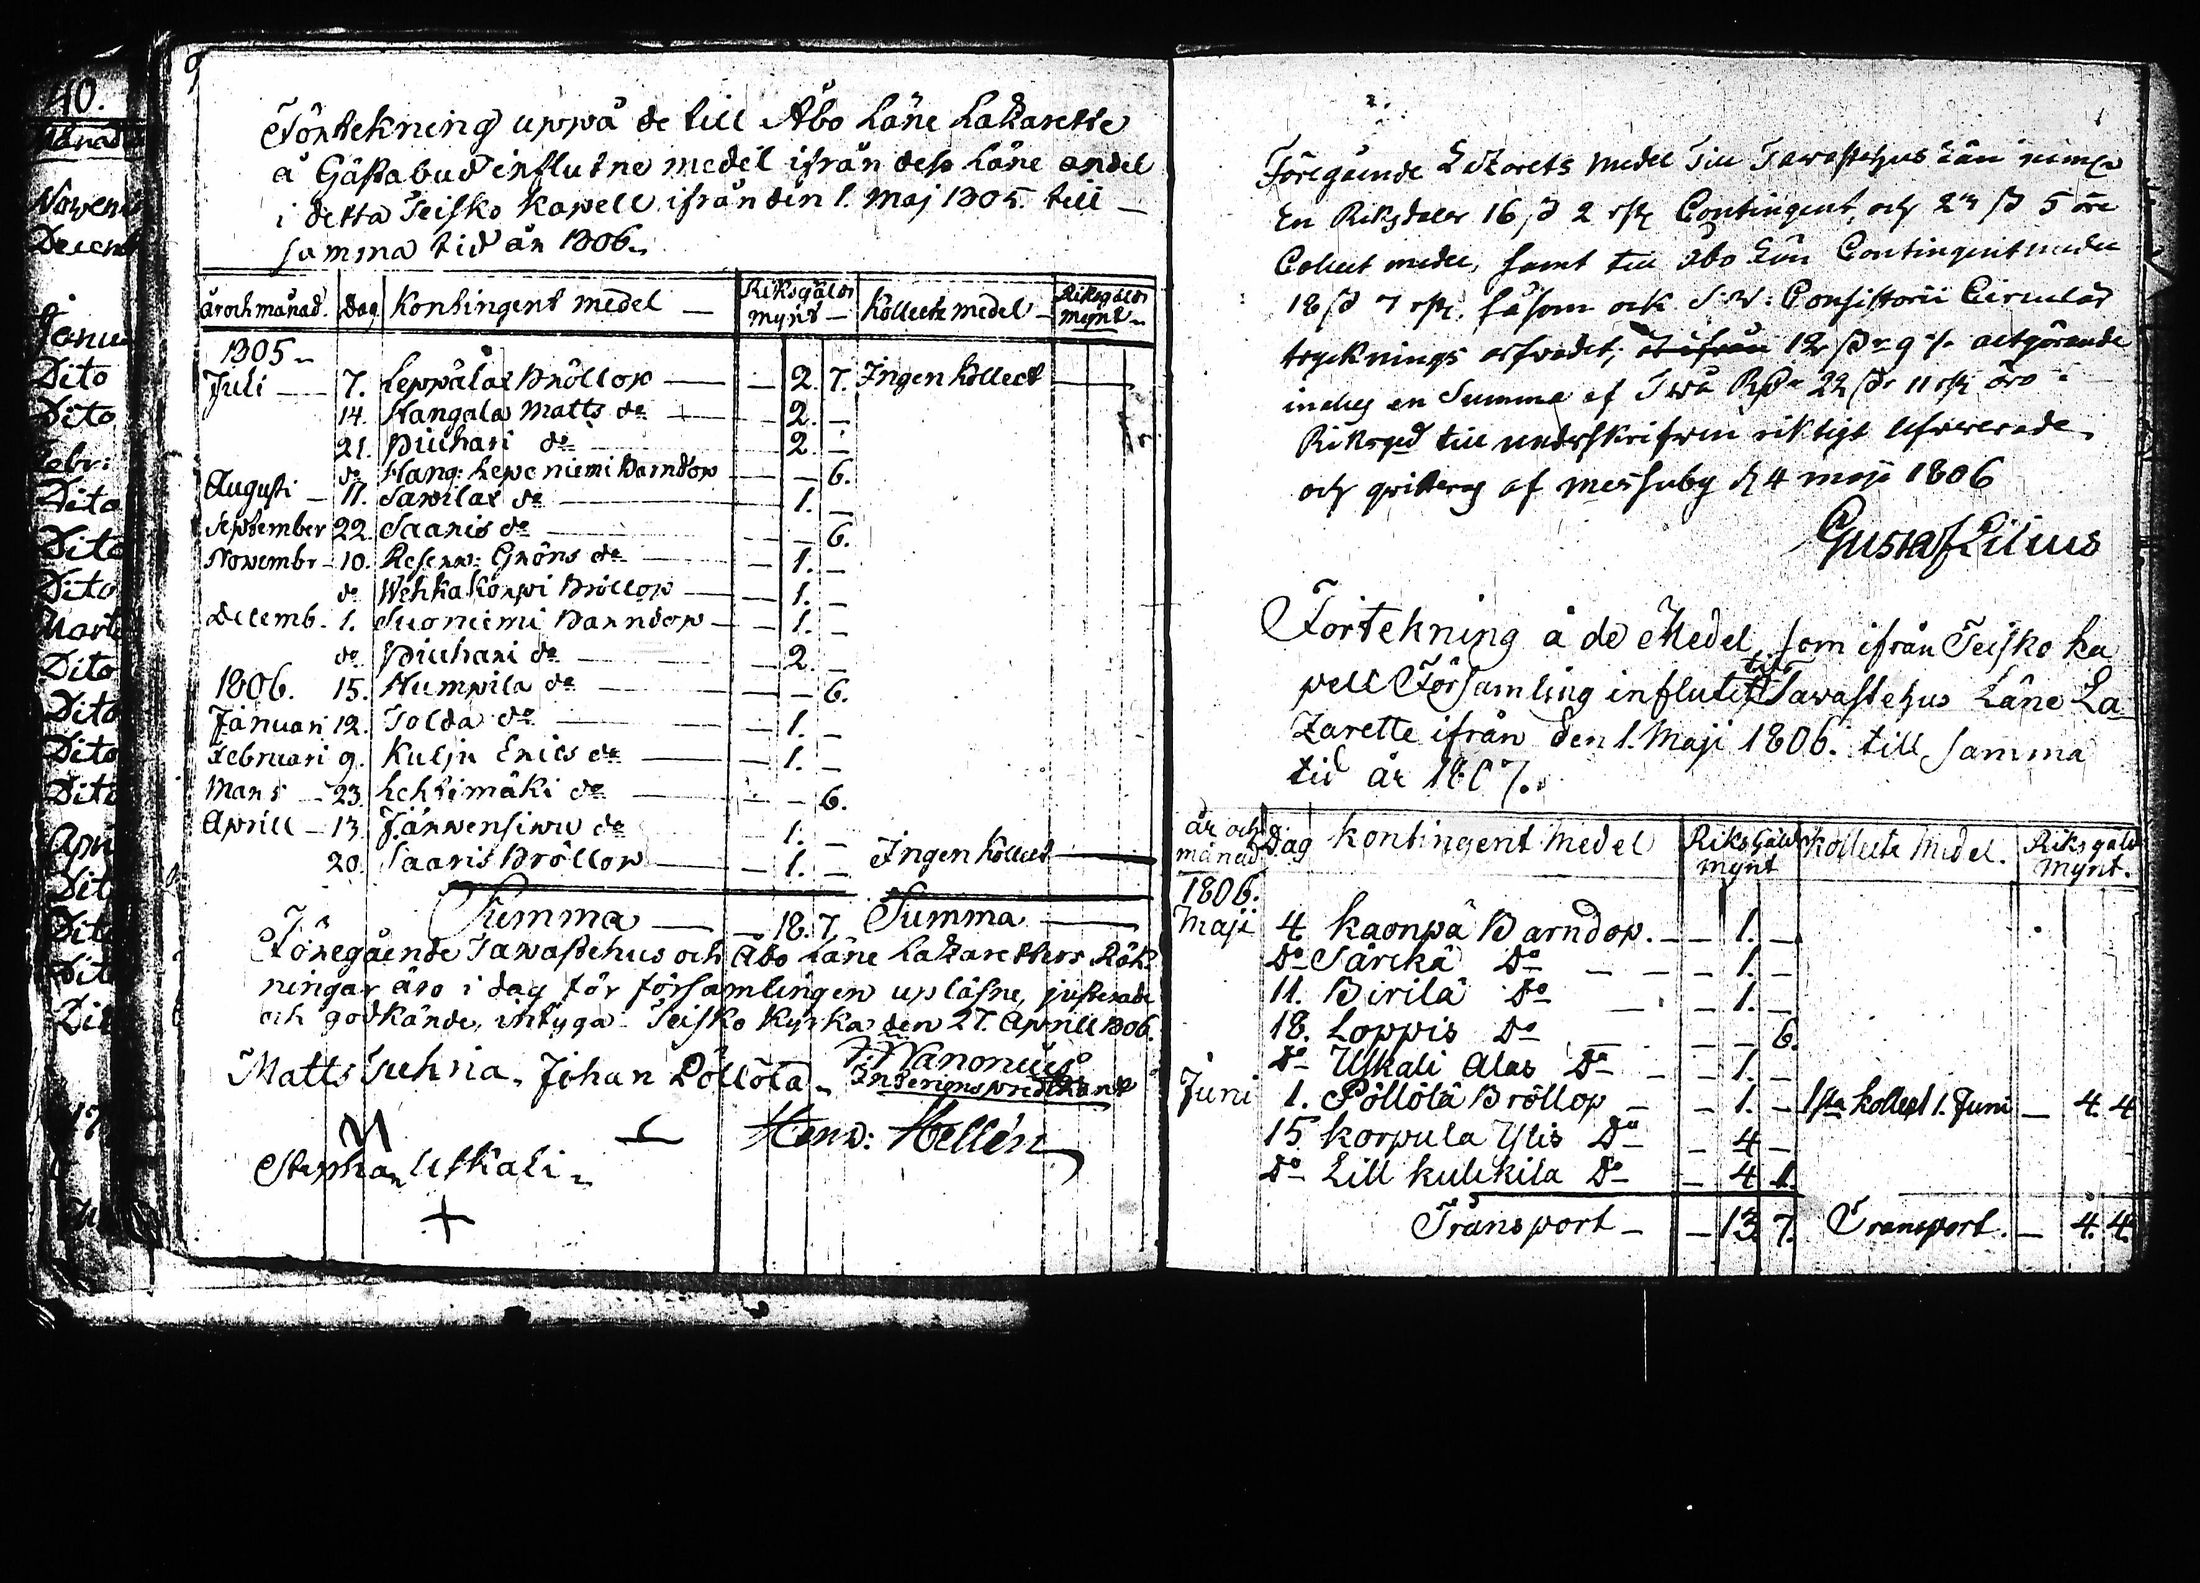 40.
Månad
Novemb
Decemb
Janua
Dito
Dito
Febr:
Dito
Dito
Dito
Marti
Dito
Dito
Dito
Dito
Apri
Dito
Dito
Dito
Dito
9
Förtekning uppå de till Åbo Läne Lazarette
å Gästabud influtne medel ifrån dess Läne andel
i detta Teisko Kapell ifrån den 1. Maj 1805. till
samma tid år 1806.
år och månad. Dag Kontingent medel Riksgälds mynt Kollecte medel Riksgälds mynt
1805
Juli 7. Leppälax Bröllop 2. 7. Ingen Kollect
14. Hangala Matts do 2.
21. Piuhari do 2.
do Hang: Lepeniemi Barndop 6.
Augusti 11. Sawilax do 1.
September 22. Saaris do 6.
Novembr 10. Reserv: Gröns do 1.
do Wehkakorpi Bröllop 1.
Decemb. 1. Suoniemi Barndop 1.
do Piuhari do 2.
1806. 15. Humpila do 6.
Januari 12. Tolda do 1.
Februari 9. Kulju Erics do 1.
Mars 23. Lehtimäki do 6.
Aprill 13. Järwensiwu do 1.
20. Saaris Bröllop 1. Ingen Kollect
Summa 18. 7. Summa
Föregående Tawastehus och Åbo Läne Lazaretters Räk
ningar äro i dag för församlingen upläsne, justerade
och godkände, intyga Teisko Kyrka den 27. Aprill 1806.
Matts Juhria. Johan Pöllölä
Hend: Hellén
Stephan Uskali
Föregående Lazarets medel Till Tawastehus Län
En Riksdaler 16 ß 2 Contingent, och 27 ß 5 öre
Collect medel, samt till Åbo Län Contingent medel
18 ß 7 såsom ock Consistorii Circulär
trycknings 12 ß 9 altgörande
en Summa af Två 22 ß 11
till underskrifwen riktigt lefwererade
och af Messuby d 4 maji 1806
Gustaf Lilius
Förtekning å de Medel, som ifrån Teisko Ka
pell Församling influtit till Tawastehus Läne La
zarette ifrån den 1. Maji 1806. till samma
tid år 1807.
år och månad Dag Kontingent Medel Riksgälds mynt Kollecte Medel. Riksgälds mynt.
1806.
Maji 4 Kaonpä Barndop. 1.
Do Särckä Do 1.
11. Birilä Do 1.
18. Loppis Do 6.
Do Uskali Alas Do 1.
Juni 1. Pöllölä Bröllop 1. 1sta Kollegt 1. Juni 4. 4
15 Korpula Ylis Do 4
Do Lill Kulckila Do 4 1.
Transport 13. 7. Transport. 4. 4.